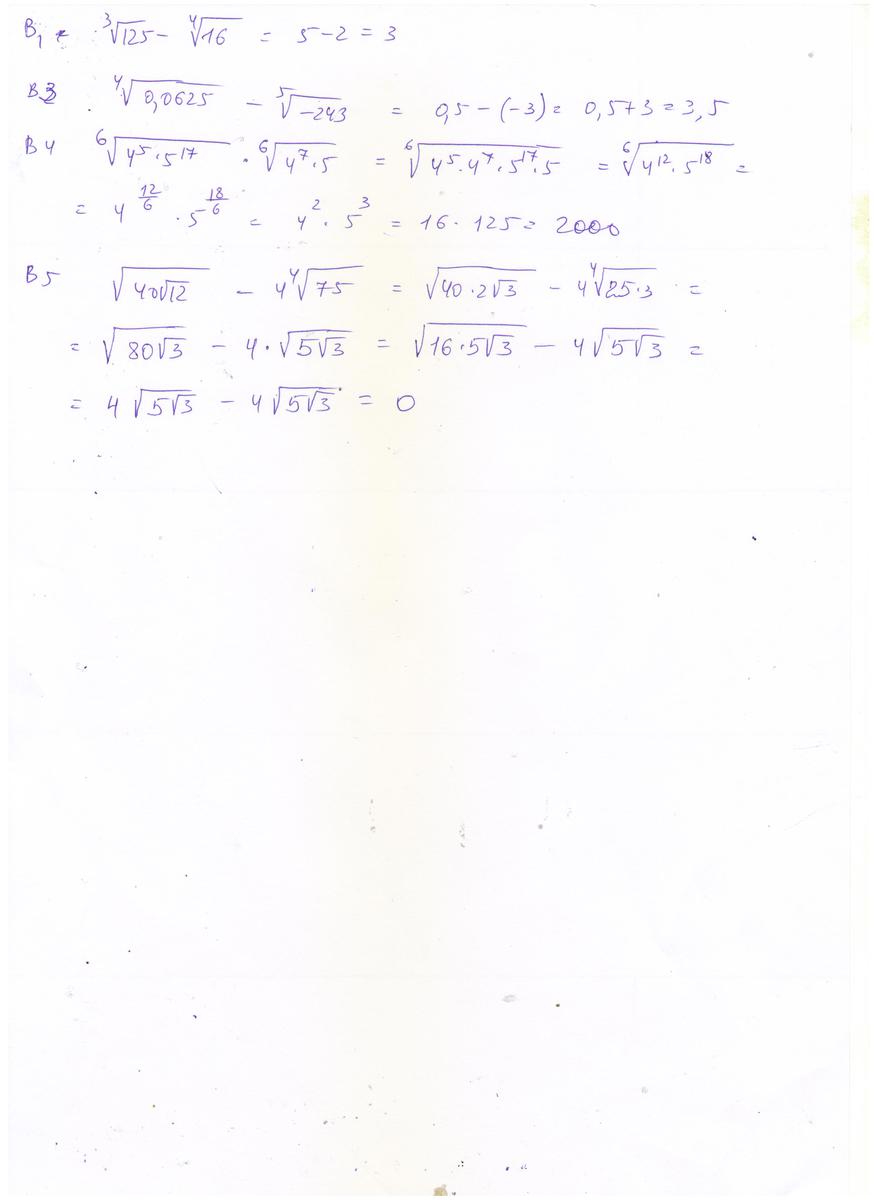 B1 ∛125 − ∜16 = 5 − 2 = 3
B3 ∜0,0625 − ⁵√−243 = 0,5 − (−3) = 0,5 + 3 = 3,5
B4 ⁶√(4⁵·5¹⁷) · ⁶√(4⁷·5) = ⁶√(4⁵·4⁷·5¹⁷·5) = ⁶√(4¹²·5¹⁸) =
= 4^(12/6) · 5^(18/6) = 4² · 5³ = 16 · 125 = 2000
B5 √(40√12) − 4∜75 = √(40·2√3) − 4∜(25·3) =
= √(80√3) − 4·√(5√3) = √(16·5√3) − 4√(5√3) =
= 4√(5√3) − 4√(5√3) = 0